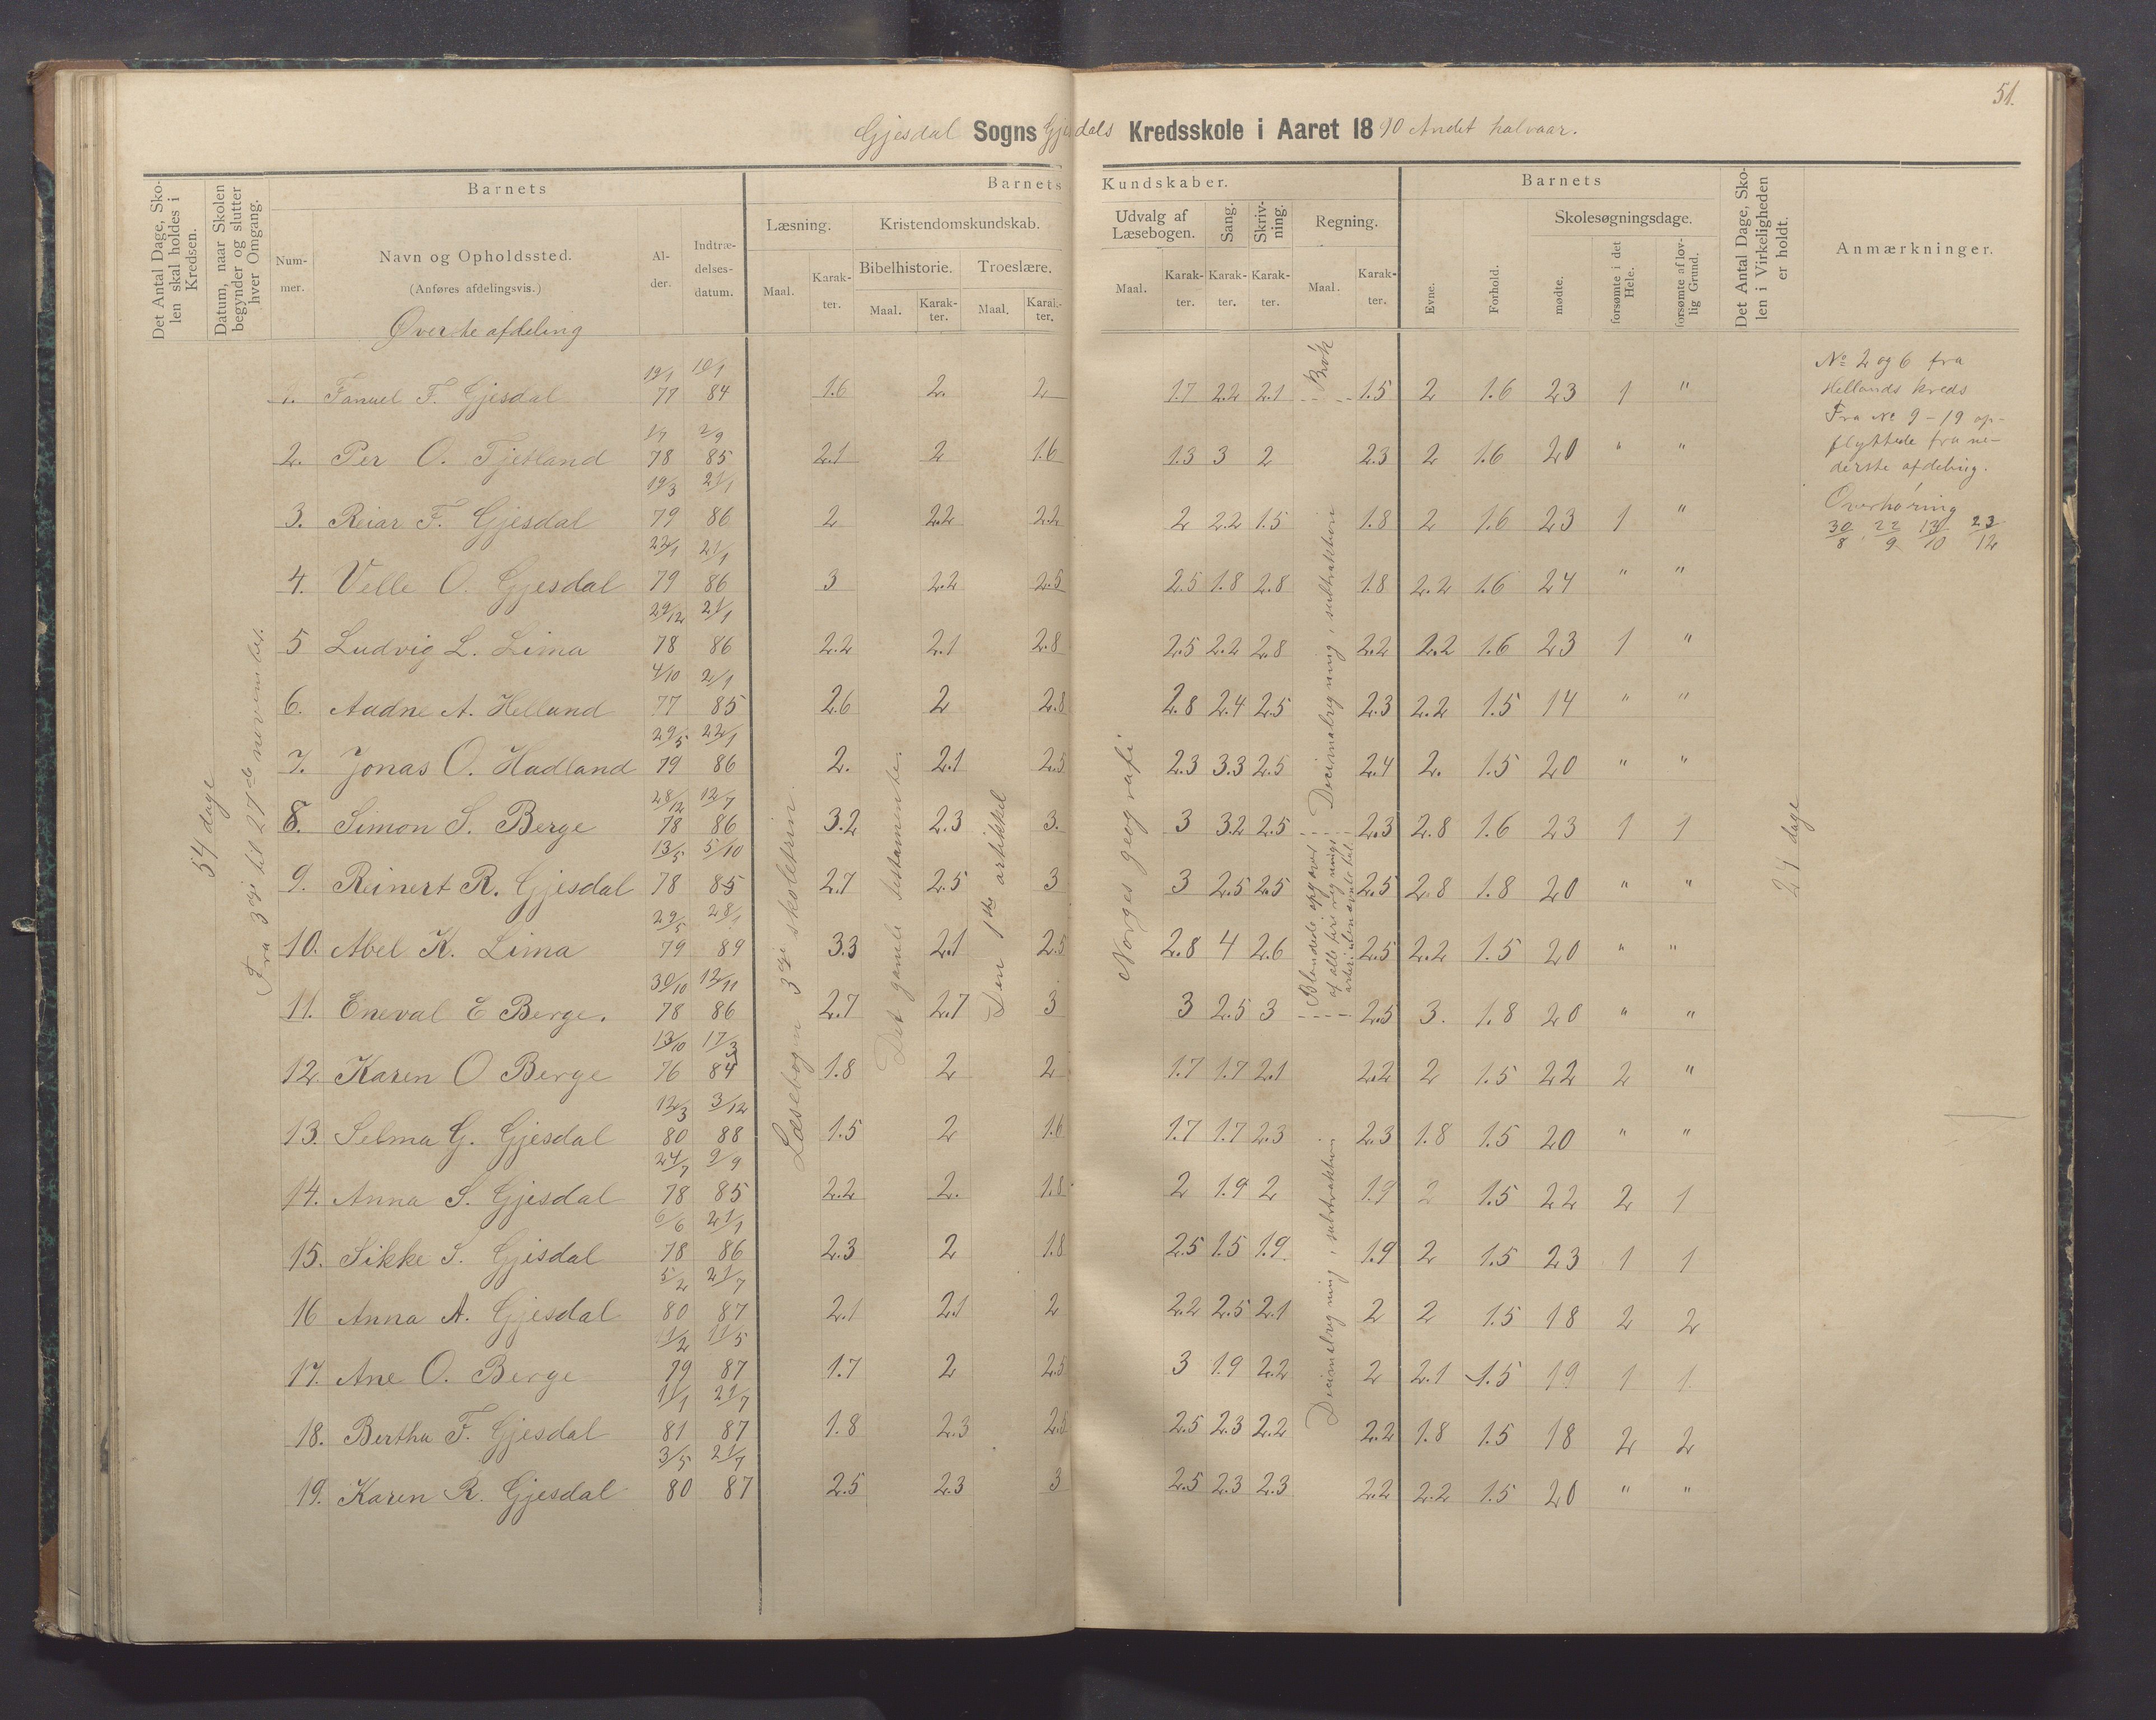 51.
Gjesdal Sogns Gjesdals Kredsskole i Aaret 1890 Andet halvaar.
Det Antal Dage, Skolen skal holdes i Kredsen.
Datum, naar Skolen begynder og slutter hver Omgang.
Barnets
Barnets Kundskaber.
Barnets
Det Antal Dage, Skolen i Virkeligheden er holdt.
Anmærkninger.
Nummer.
Navn og Opholdssted.
(Anføres afdelingsvis.)
Alder.
Indtrædelsesdatum.
Læsning.
Kristendomskundskab.
Udvalg af Læsebogen.
Sang.
Skrivning.
Regning.
Evne.
Forhold.
Skolesøgningsdage.
Maal.
Karakter.
Bibelhistorie.
Troeslære.
Maal.
Karakter.
Maal.
Karakter.
Maal.
Karakter.
Karakter.
Karakter.
Maal.
Karakter.
mødte.
forsømte i det Hele.
forsømte af lovlig Grund.
Øverste afdeling
54 dage
27de november
Læsebogen skoletrin.
Det gamle testamente.
Den 1ste artikkel
Norges geografi
Brøk
Decimalregning, subtraktion
Blandede opgaver
Decimalregning, subtraktion
dage
1. Fanuel F. Gjesdal 19/1 77 10/1 84 1.6 2. 2 1.7 2.2 2.1 1.5 2 1.6 23 1 "
2. Per O. Fjetland 78 2/9 85 2.1 2 1.6 1.3 3 2 2.3 2 1.6 20 " "
3. Reiar F. Gjesdal 19/3 79 21/1 86 2 2.2 2.2 2 2.2 1.5 1.8 2 1.6 23 1 "
4. Velle O. Gjesdal 22/1 79 21/1 86 3 2.2 2.5 2.5 1.8 2.8 1.8 2.2 1.6 24 " "
5 Ludvig L. Lima 29/12 78 21/1 86 2.2 2.1 2.8 2.5 2.2 2.8 2.2 2.2 1.6 23 1 "
6. Aadne A. Helland 4/10 77 2/1 85 2.6 2 2.8 2.8 2.4 2.5 2.3 2.2 1.5 14 " "
7. Jonas O. Hadland 29/5 79 22/1 86 2. 2.1 2.5 2.3 3.3 2.5 2.4 2. 1.5 20 " "
8. Simon S. Berge 28/12 78 12/7 86 3.2 2.3 3. 3 3.2 2.5 2.3 2.8 1.6 23 1 1
9. Reinert R. Gjesdal 13/5 78 5/10 85 2.7 2.5 3 3 2.5 2.5 2.5 2.8 1.8 20 " "
10. Abel K. Lima 29/5 79 28/1 89 3.3 2.1 2.5 2.8 4 2.6 2.5 2.2 1.5 20 " "
11. Eneval E Berge. 30/10 78 12/11 86 2.7 2.7 3 3 2.5 3 2.5 3. 1.8 20 " "
12 Karen O Berge 13/10 76 17/3 84 1.8 2 2 1.7 1.7 2.1 2.2 2 1.5 22 2 "
13. Selma G. Gjesdal 12/3 80 3/12 88 1.5 2 1.6 1.7 1.7 2.3 2.3 1.8 1.5 20 " "
14. Anna S. Gjesdal 24/7 78 9/9 85 2.2 2. 1.8 2 1.9 2 1.9 2 1.5 22 2 1
15. Sikke S. Gjesdal 6/6 78 21/1 86 2.3 2 1.8 2.5 1.5 1.9 1.9 2 1.5 23 1 1
16 Anna A. Gjesdal 5/2 80 21/7 87 2.1 2.1 2 2.2 2.5 2.1 2 2 1.5 18 2 2
17. Ane O. Berge 11/2 79 11/5 87 1.7 2 2.5 3 1.9 2.2 2 2.1 1.5 19 1 1
18. Bertha F. Gjesdal 1/1 81 21/7 87 1.8 2.3 2.5 2.5 2.3 2.2 2.2 1.8 1.5 18 2 2
19. Karen R. Gjesdal 3/5 80 21/7 87 2.5 2.3 3 2.5 2.3 2.3 2.2 2.2 1.5 20 " "
No 2 og 6 fra
Hellands kreds
Fra No 9-19 op-
flyttede fra ne-
derste afdeling.
Overhøring
30/8, 22/9 13/10 23/12